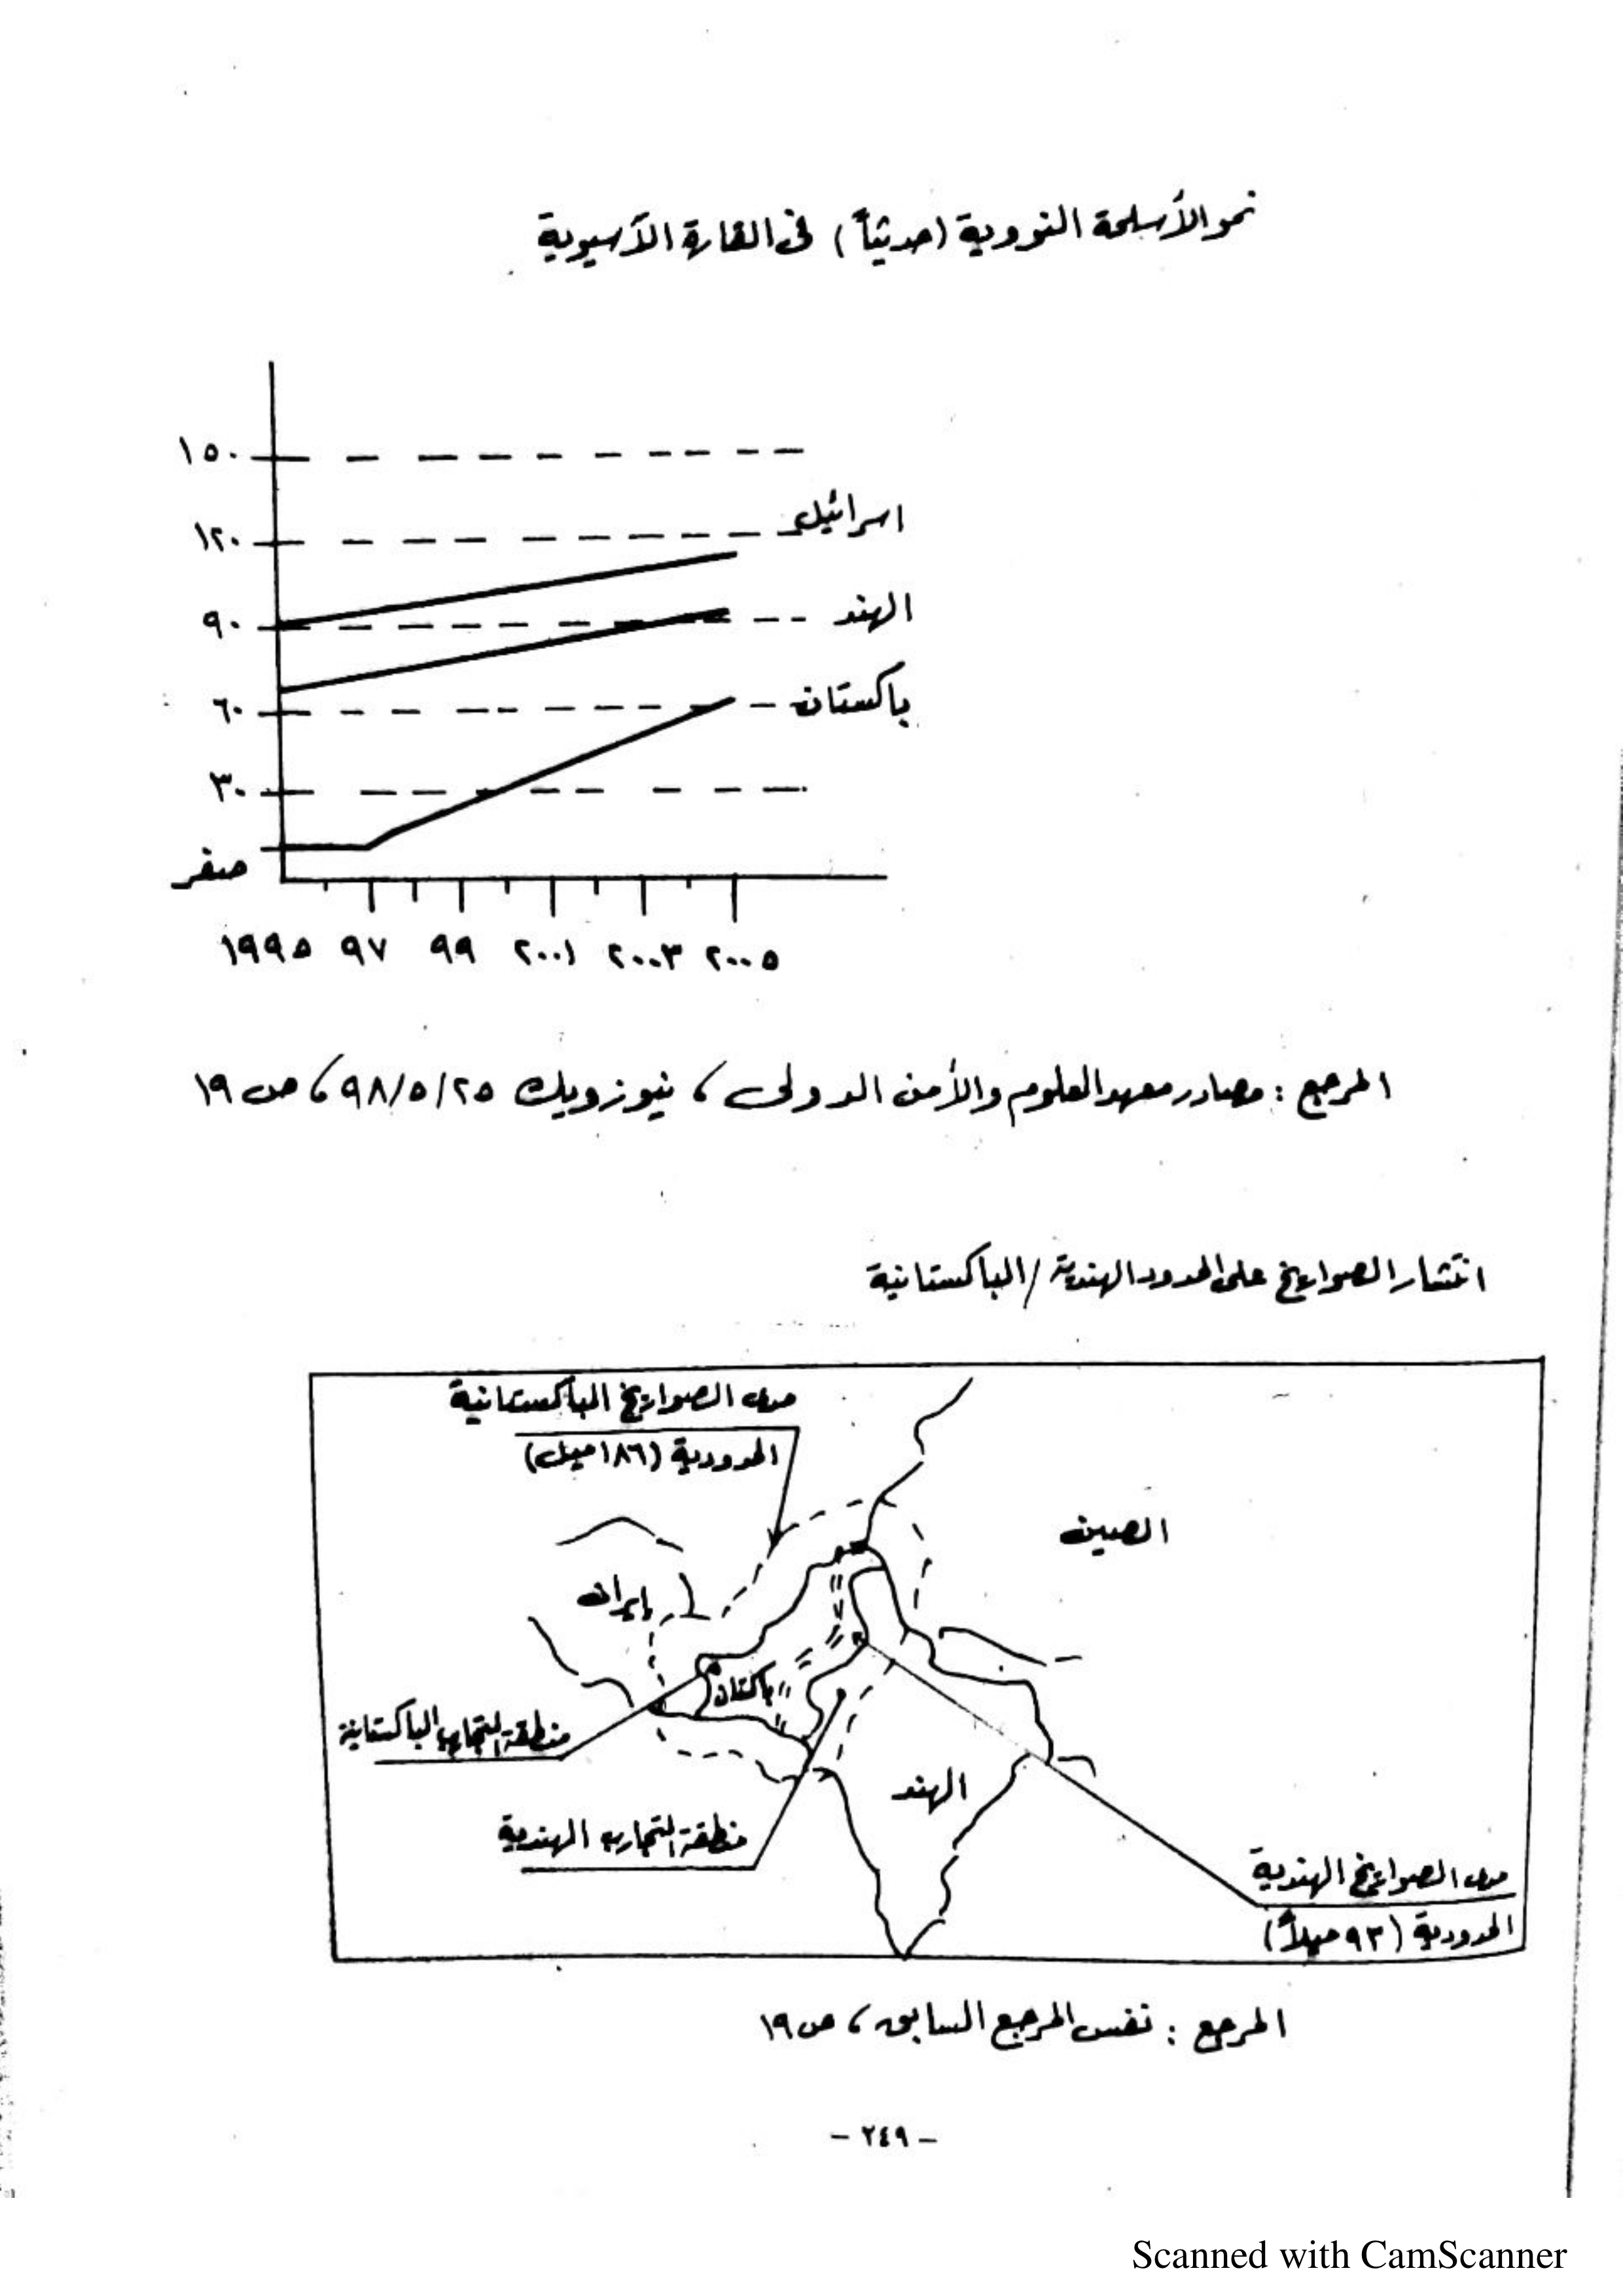 نمو الأسلحة النووية (حديثاً) فى القارة الآسيوية
١٥٠
اسرائيل
١٢٠
الهند
٩٠
باكستان
٦٠
٣٠
صفر
١٩٩٥ ٩٧ ٩٩ ٢٠٠١ ٢٠٠٣ ٢٠٠٥
المرجع : مصادر معهد العلوم والأمن الدولى ، نيوزويك ٩٨/٥/٢٥ ، ص ١٩
انتشار الصواريخ على الحدود الهندية / الباكستانية
مدى الصواريخ الباكستانية
الحدودية (١٨٦ ميل)
الصين
إيران
باكستان
منطقة التجارب الباكستانية
الهند
منطقة التجارب الهندية
مدى الصواريخ الهندية
الحدودية (٩٣ ميلاً)
المرجع : نفس المرجع السابق ، ص ١٩
- ٢٤٩ -
Scanned with CamScanner